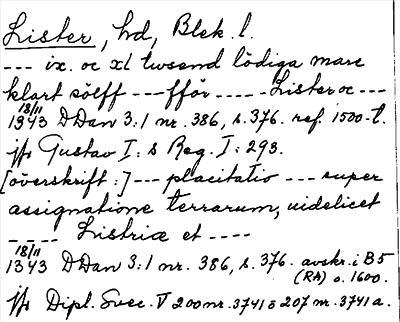 Lister, hd, Blek. l.
--- ix. oc xl twsend lödiga marc
klart sölff --- fför ----- Lister oc ---
18/11
1343 DDan 3:1 nr. 386, s. 376. ref. 1500-t.
jfr Gustav I:s Reg. I: 293.
[överskrift:] --- placitatio --- super
assignatione terrarum, uidelicet
----- Listriæ et ----
18/11
1343 DDan 3:1 nr. 386, s. 376. avskr. i B 5
(RA) o. 1600.
jfr Dipl. Svec. V 200 nr. 3741 o 207 nr. 3741 a.